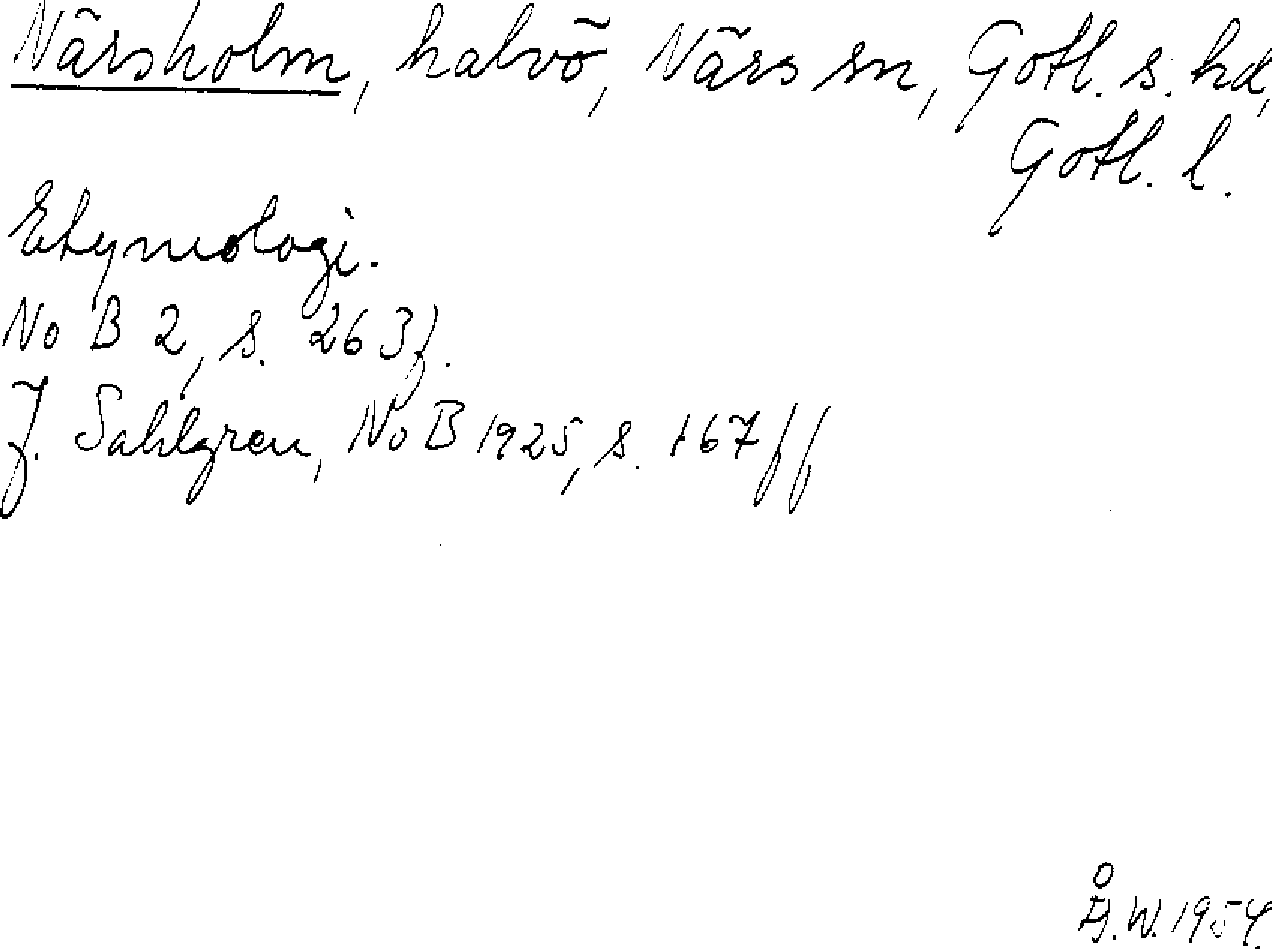 Närsholm, halvö, Närs sn, Gotl. s. hd,
Gotl. l.
Etymologi.
NoB 2, s. 263f.
J. Sahlgren, NoB 1925, s. 167ff
Å.W. 1954.